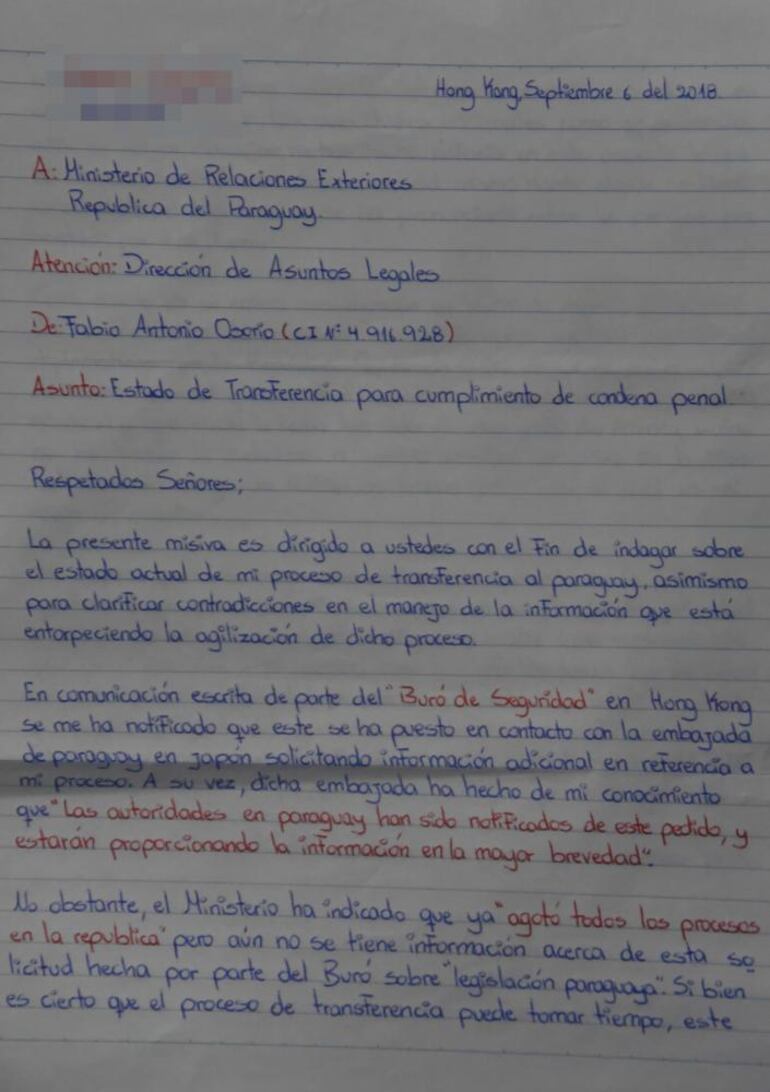 Hong Kong, Septiembre 6 del 2018.
A: Ministerio de Relaciones Exteriores
Republica del Paraguay.
Atención: Dirección de Asuntos Legales
De: Fabio Antonio Osorio (CI Nº 4.916.928)
Asunto: Estado de Transferencia para cumplimiento de condena penal.
Respetados Señores;
La presente misiva es dirigido a ustedes con el fin de indagar sobre
el estado actual de mi proceso de transferencia al paraguay, asimismo
para clarificar contradicciones en el manejo de la información que está
entorpeciendo la agilización de dicho proceso.
En comunicación escrita de parte del "Buró de Seguridad" en Hong Kong
se me ha notificado que este se ha puesto en contacto con la embajada
de paraguay en japón solicitando información adicional en referencia a
mi proceso. A su vez, dicha embajada ha hecho de mi conocimiento
que "Las autoridades en paraguay han sido notificados de este pedido, y
estarán proporcionando la información en la mayor brevedad".
No obstante, el Ministerio ha indicado que ya "agotó todos los procesos
en la republica" pero aún no se tiene información acerca de esta so
licitud hecha por parte del Buró sobre "legislación paraguaya". Si bien
es cierto que el proceso de transferencia puede tomar tiempo, este